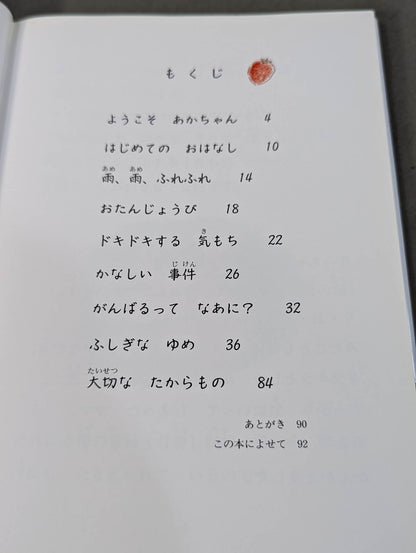 もくじ
ようこそ　あかちゃん　4
はじめての　おはなし　10
雨、雨、ふれふれ　14
おたんじょうび　18
ドキドキする　気もち　22
かなしい　事件　26
がんばるって　なあに？　32
ふしぎな　ゆめ　36
大切な　たからもの　84
あとがき　90
この本によせて　92